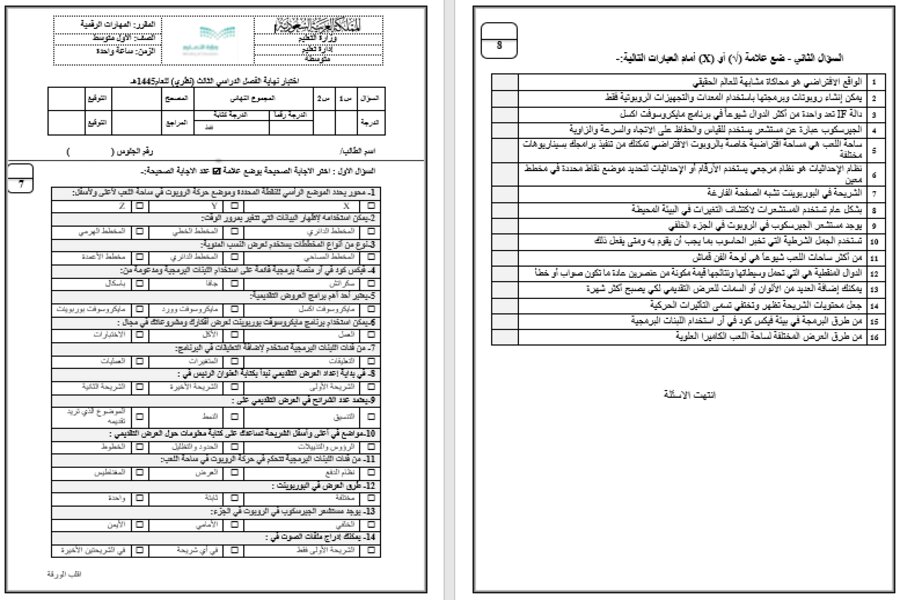 المملكة العربية السعودية
وزارة التعليم
إدارة تعليم
متوسطة
وزارة التعليم
المقرر: المهارات الرقمية
الصف: الأول متوسط
الزمن: ساعة واحدة
اختبار نهاية الفصل الدراسي الثالث (نظري) للعام 1445هـ
السؤال س1 س2 المجموع النهائي المصحح التوقيع
الدرجة الدرجة رقماً الدرجة كتابة المراجع التوقيع
فقط
اسم الطالب/ رقم الجلوس ( )
7
السؤال الأول : اختر الاجابة الصحيحة بوضع علامة ☑ عدد الاجابة الصحيحة:-
1- محور يحدد الموضع الرأسي للنقطة المحددة وموضع حركة الروبوت في ساحة اللعب لأعلى ولأسفل:
☐ X ☐ Y ☐ Z
2-يمكن استخدامه لإظهار البيانات التي تتغير بمرور الوقت:
☐ المخطط الدائري ☐ المخطط الخطي ☐ المخطط الهرمي
3-نوع من أنواع المخططات يستخدم لعرض النسب المئوية:
☐ المخطط المساحي ☐ المخطط الدائري ☐ مخطط الأعمدة
4- فيكس كود في آر منصة برمجية قائمة على استخدام اللبنات البرمجية ومدعومة من:
☐ سكراتش ☐ جافا ☐ باسكال
5-يعتبر أحد أهم برامج العروض التقديمية:
☐ مايكروسوفت اكسل ☐ مايكروسوفت وورد ☐ مايكروسوفت بوربوينت
6-يمكن استخدام برنامج مايكروسوفت بوربوينت لعرض أفكارك ومشروعاتك في مجال :
☐ العمل ☐ الأكل ☐ الاختبارات
7- من فئات اللبنات البرمجية تستخدم لإضافة التعليقات في البرنامج:
☐ التعليقات ☐ المتغيرات ☐ العمليات
8- في بداية إعداد العرض التقديمي نبدأ بكتابة العنوان الرئيس في :
☐ الشريحة الأولى ☐ الشريحة الأخيرة ☐ الشريحة الثانية
9-يعتمد عدد الشرائح في العرض التقديمي على :
☐ التنسيق ☐ النمط ☐ الموضوع الذي تريد
تقديمه
10-مواضع في أعلى وأسفل الشريحة تساعدك على كتابة معلومات حول العرض التقديمي :
☐ الرؤوس والتذييلات ☐ الحدود والتظليل ☐ الخطوط
11- من فئات اللبنات البرمجية تتحكم في حركة الروبوت في ساحة اللعب:
☐ نظام الدفع ☐ العرض ☐ المغناطيس
12- طرق العرض في البوربوينت :
☐ مختلفة ☐ ثابتة ☐ واحدة
13- يوجد مستشعر الجيرسكوب في الروبوت في الجزء:
☐ الخلفي ☐ الأمامي ☐ الأيمن
14- يمكنك إدراج ملفات الصوت في :
☐ الشريحة الأولى فقط ☐ في أي شريحة ☐ في الشريحتين الأخيرة
اقلب الورقة
8
السؤال الثاني - ضع علامة (√) أو (X) أمام العبارات التالية:-
1 الواقع الافتراضي هو محاكاة مشابهة للعالم الحقيقي
2 يمكن إنشاء روبوتات وبرمجتها باستخدام المعدات والتجهيزات الروبوتية فقط
3 دالة IF تعد واحدة من أكثر الدوال شيوعاً في برنامج مايكروسوفت اكسل
4 الجيرسكوب عبارة عن مستشعر يستخدم للقياس والحفاظ على الاتجاه والسرعة والزاوية
5 ساحة اللعب هي مساحة افتراضية خاصة بالروبوت الافتراضي تمكنك من تنفيذ برامجك بسيناريوهات
مختلفة
6 نظام الإحداثيات هو نظام مرجعي يستخدم الأرقام أو الإحداثيات لتحديد موضع نقاط محددة في مخطط
معين
7 الشريحة في البوربوينت تشبه الصفحة الفارغة
8 بشكل عام تستخدم المستشعرات لاكتشاف التغيرات في البيئة المحيطة
9 يوجد مستشعر الجيرسكوب في الروبوت في الجزء الخلفي
10 تستخدم الجمل الشرطية التي تخبر الحاسوب بما يجب أن يقوم به ومتى يفعل ذلك
11 من أكثر ساحات اللعب شيوعاً هي لوحة الفن قماش
12 الدوال المنطقية هي التي تحمل وسيطاتها ونتائجها قيمة مكونة من عنصرين عادة ما تكون صواب أو خطأ
13 يمكنك إضافة العديد من الألوان أو السمات للعرض التقديمي لكي يصبح أكثر شهرة
14 جعل محتويات الشريحة تظهر وتختفي تسمى التأثيرات الحركية
15 من طرق البرمجة في بيئة فيكس كود في آر استخدام اللبنات البرمجية
16 من طرق العرض المختلفة لساحة اللعب الكاميرا العلوية
انتهت الاسئلة